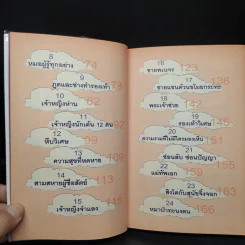 8
หมอผู้รู้ทุกอย่าง 74
9
ภูตและช่างทำรองเท้า 78
10
เจ้าหญิงห่าน 82
11
เจ้าหญิงนักเต้น 12 คน 92
12
หีบวิเศษ 99
13
ความสุขที่หดหาย 108
14
สามสหายผู้ซื่อสัตย์
15
เจ้าหญิงจำแลง
16
ชายพเนจร 123
17
18
พระเจ้าช่วย
19
รองเท้าวิเศษ
20
ความงามที่ไม่มีใครมองเห็น 151
21
ซ่อนลับ ซ่อนปัญญา 155
22
แม่ทัพเอก
23
สิงโตกับสุนัขจิ้งจอก
24
หมาป่าจอมวางตน 166